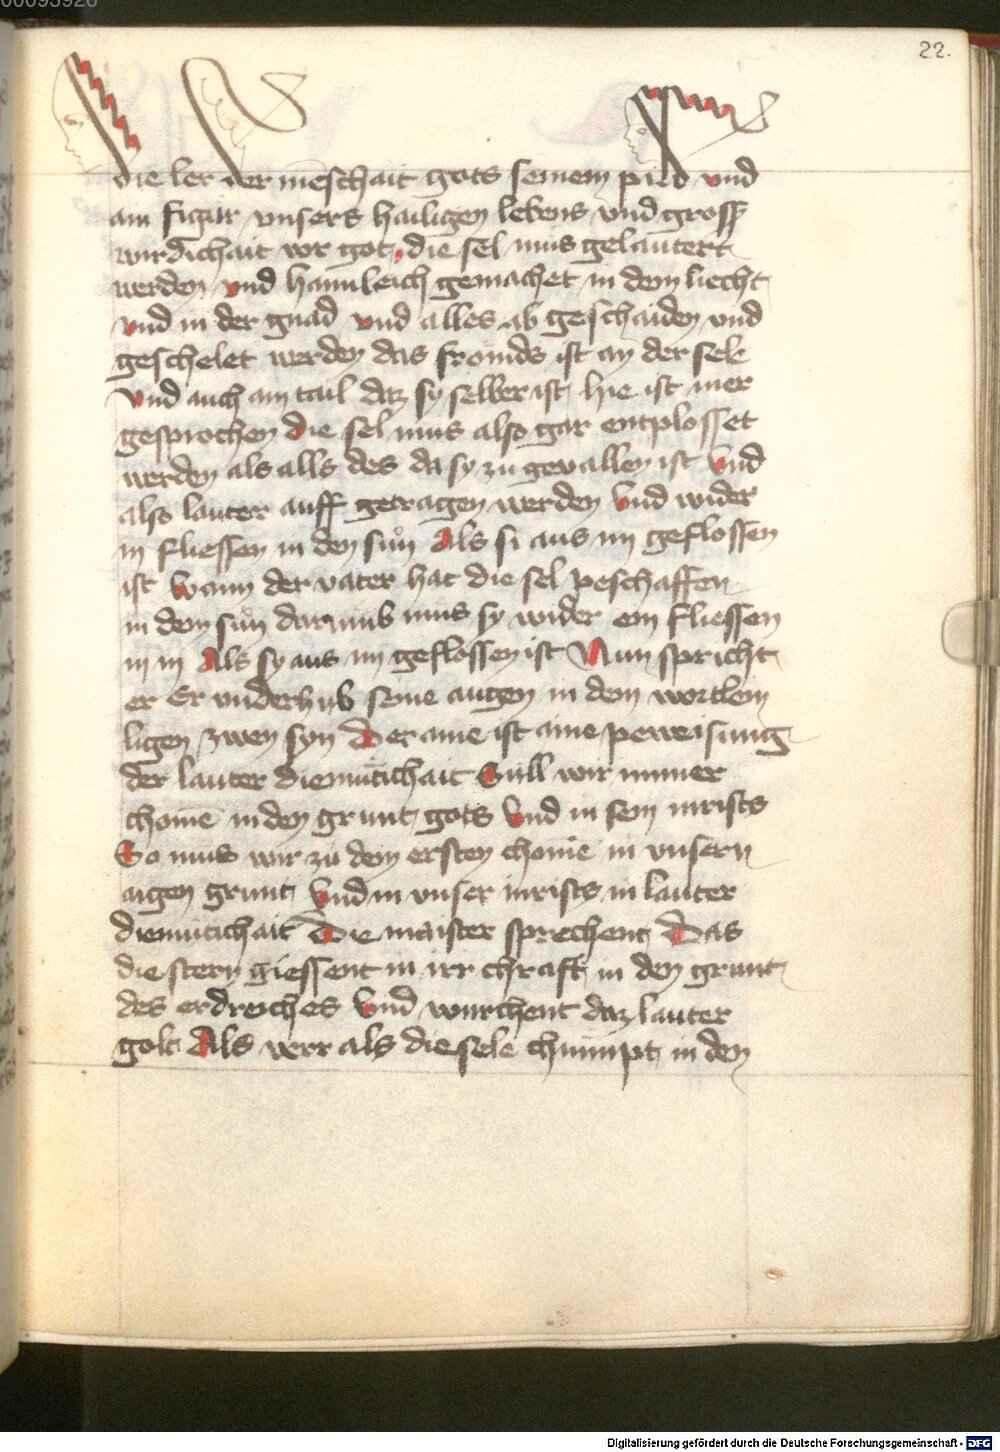 00093926
22.
die ler der mēschait gots seinem pild vnd
ain figur vnsers hailigen lebens vnd gross
wirdichait vor got die sel mus gelautert
werden vnd haimleich gemachet in dem liecht
vnd in der gnad vnd alles ab geschaiden vnd
geschelet werden das fromds ist an der sele
vnd auch ain tail daz sy selber ist hie ist mer
gesprochen die sel mus also gar entplosset
werden als alls des da sy zu gevallen ist vnd
also lauter auff getragen werden vnd wider
in fliessen in den sun Als si aus im geflossen
ist wann der vater hat die sel peschaffen
in dem sun darumb mus sy wider ein fliessen
in in Als sy aus im geflossen ist Nun spricht
er Er vnderhub seine augen in dem wortlein
ligen zwen syn Der aine ist aine peweisung
der lauter diemütichait Süll wir immer
chomē in den grunt gots vnd in sein inrists
So mus wir zu dem ersten chomē in vnsern
aigen grunt vnd in vnser inrists in lauter
diemutichait Die maister sprechent Das
die stern giessent in irr chraft in den grunt
des erdreiches vnd wurchent daz lauter
golt Als verr als die sele chumpt in den
Digitalisierung gefördert durch die Deutsche Forschungsgemeinschaft - DFG